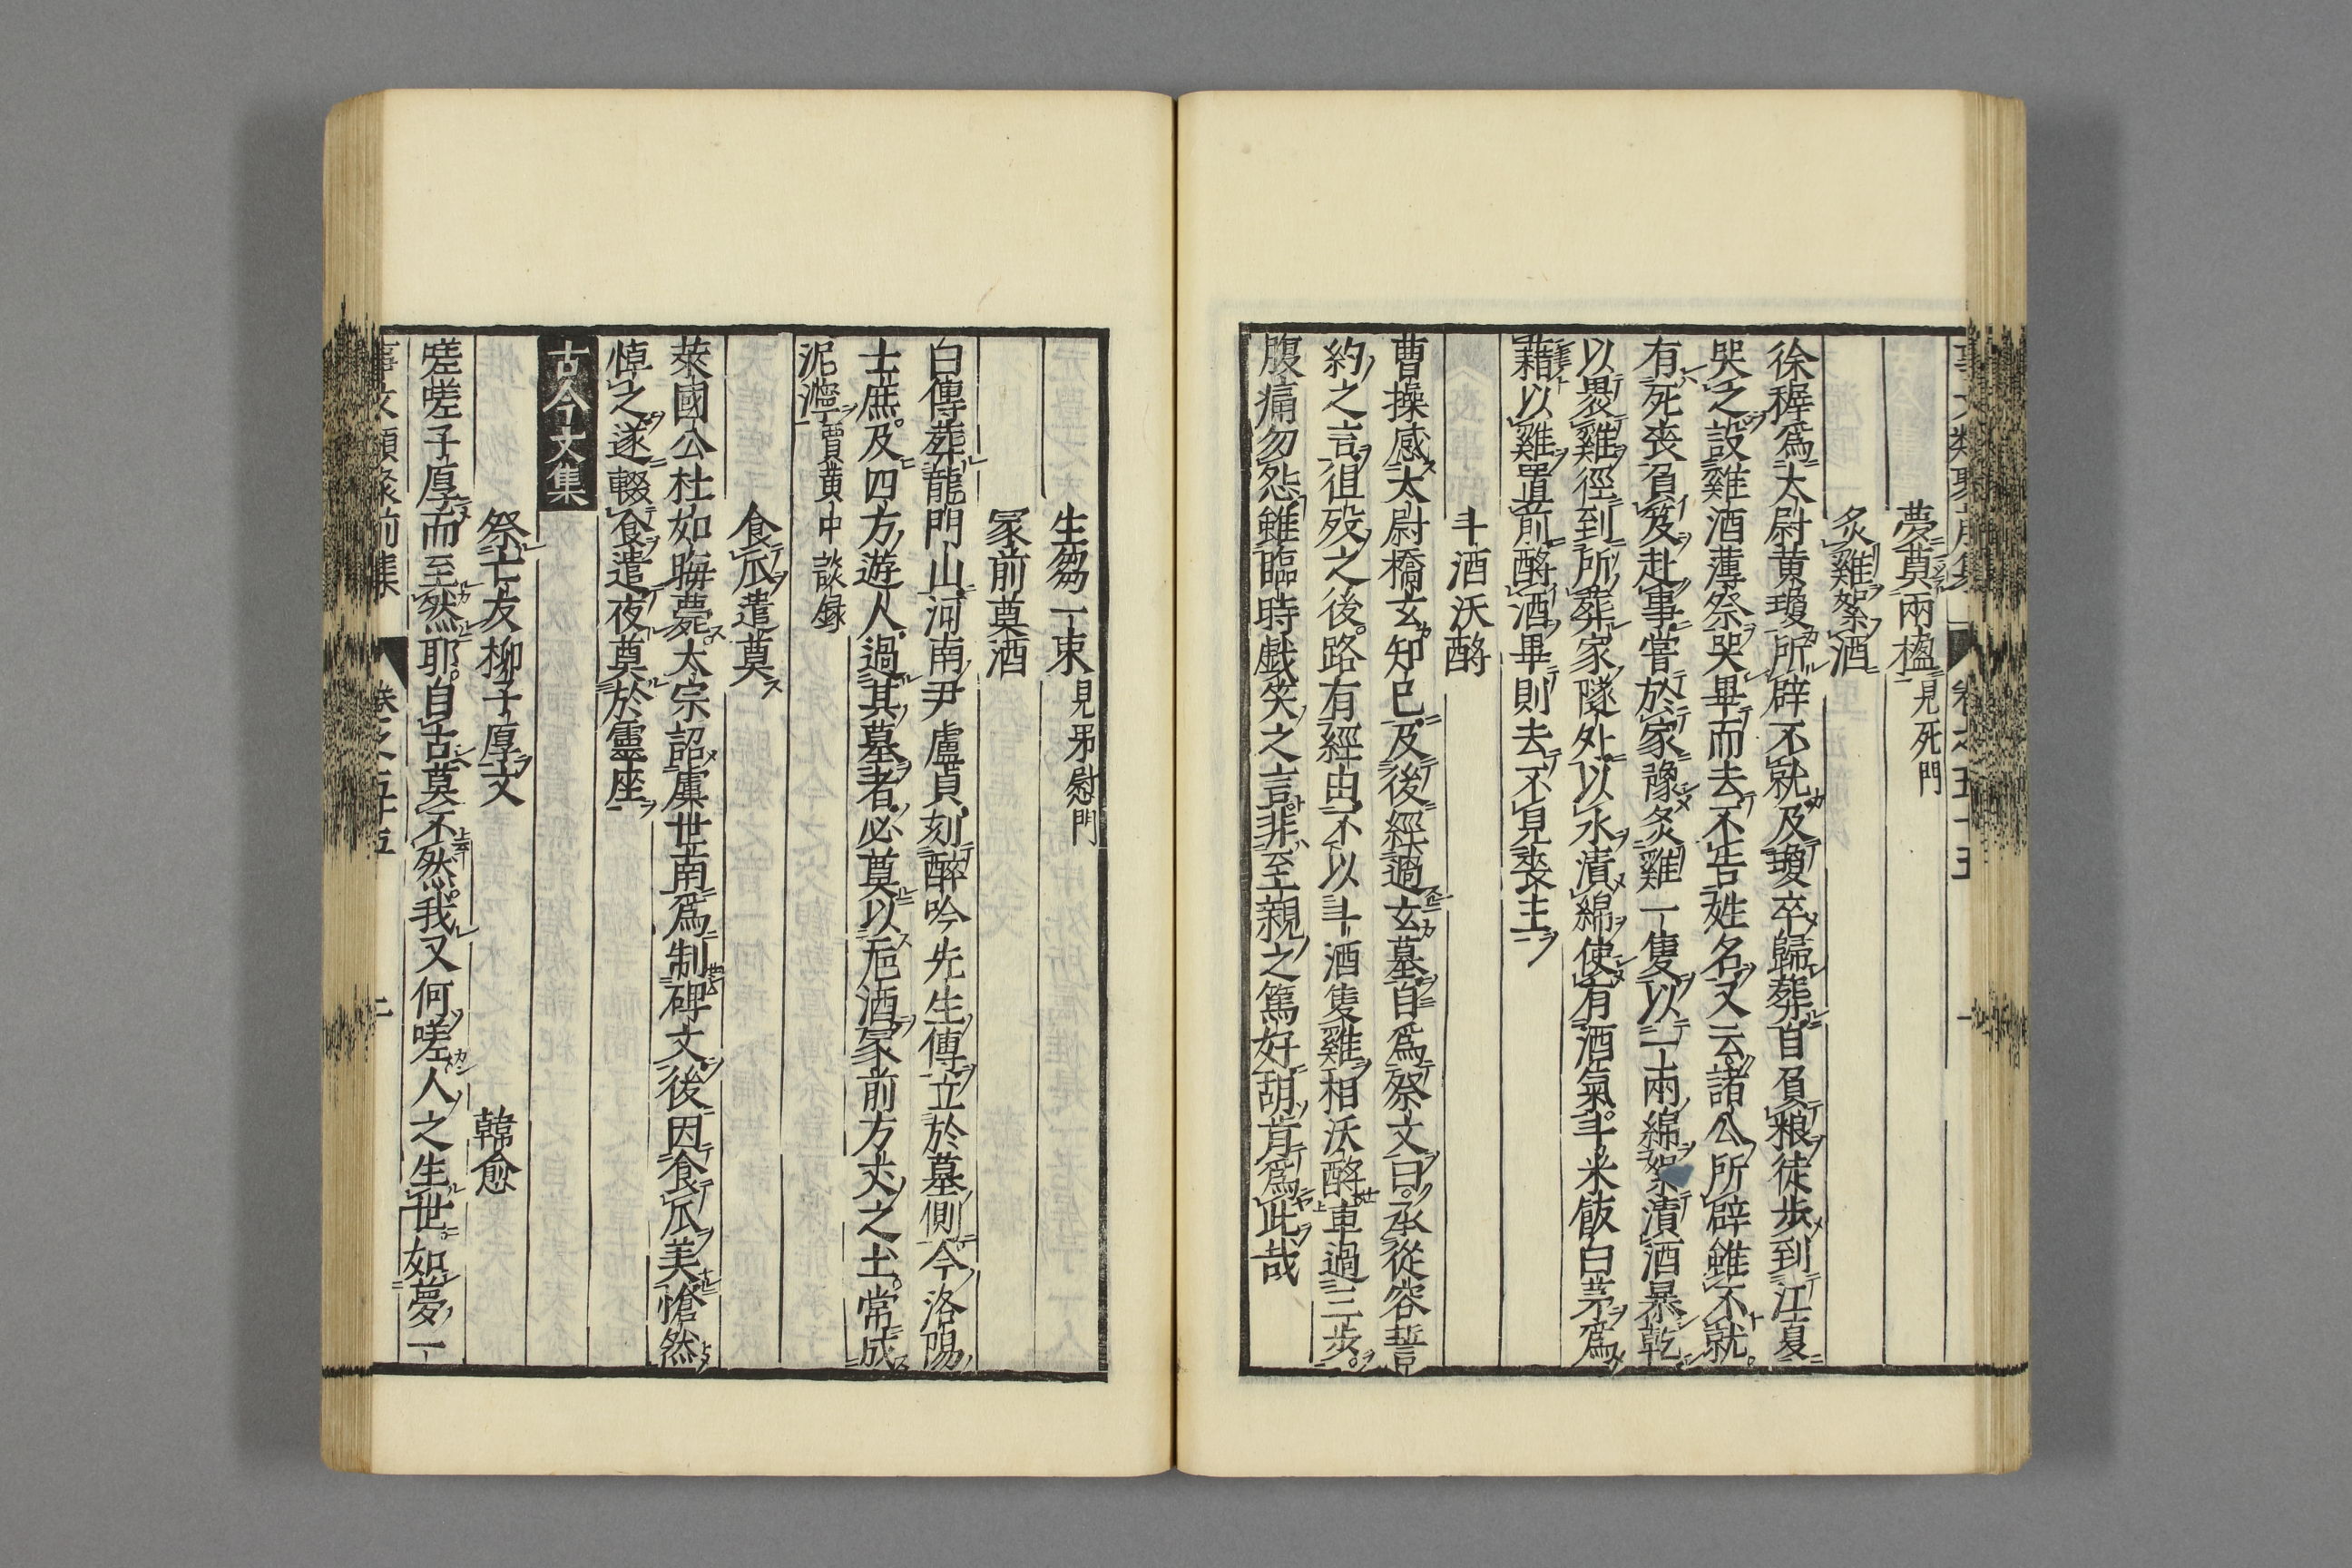 夢奠兩楹見死門
炙雞絮酒
徐穉爲太尉黄瓊所辟不就及瓊卒歸葬自負粮徒歩到江夏
哭之設雞酒薄祭哭畢而去不告姓名又云諸公所辟雖不就
有死喪負笈赴事甞於家豫炙雞一隻以一兩綿絮漬酒暴乾
以褁雞徑到所葬冢隧外以水漬綿使有酒氣斗米飯白茅爲
藉以雞置前酹酒畢則去不見喪主
斗酒沃酹
曹操感太尉橋玄知已及後經過玄墓自爲祭文曰承從容誓
約之言徂歿之後路有經由不以斗酒隻雞相沃酹車過三歩
腹痛勿怨雖臨時戲笑之言非至親之篤好胡肯爲此哉
生芻一束見弔慰門
冢前奠酒
白傅葬龍門山河南尹盧貞刻醉吟先生傳立於墓側今洛陽
士庶及四方遊人過其墓者必奠以巵酒冢前方丈之土常成
泥濘賈黄中談録
食瓜遣奠
萊國公杜如晦薨太宗詔虞世南爲制碑文後因食瓜美愴然
悼之遂輟食遣夜奠於靈座
古今文集
祭亡友柳子厚文 韓愈
嗟嗟子厚而至然耶自古莫不然我又何嗟人之生世如夢一